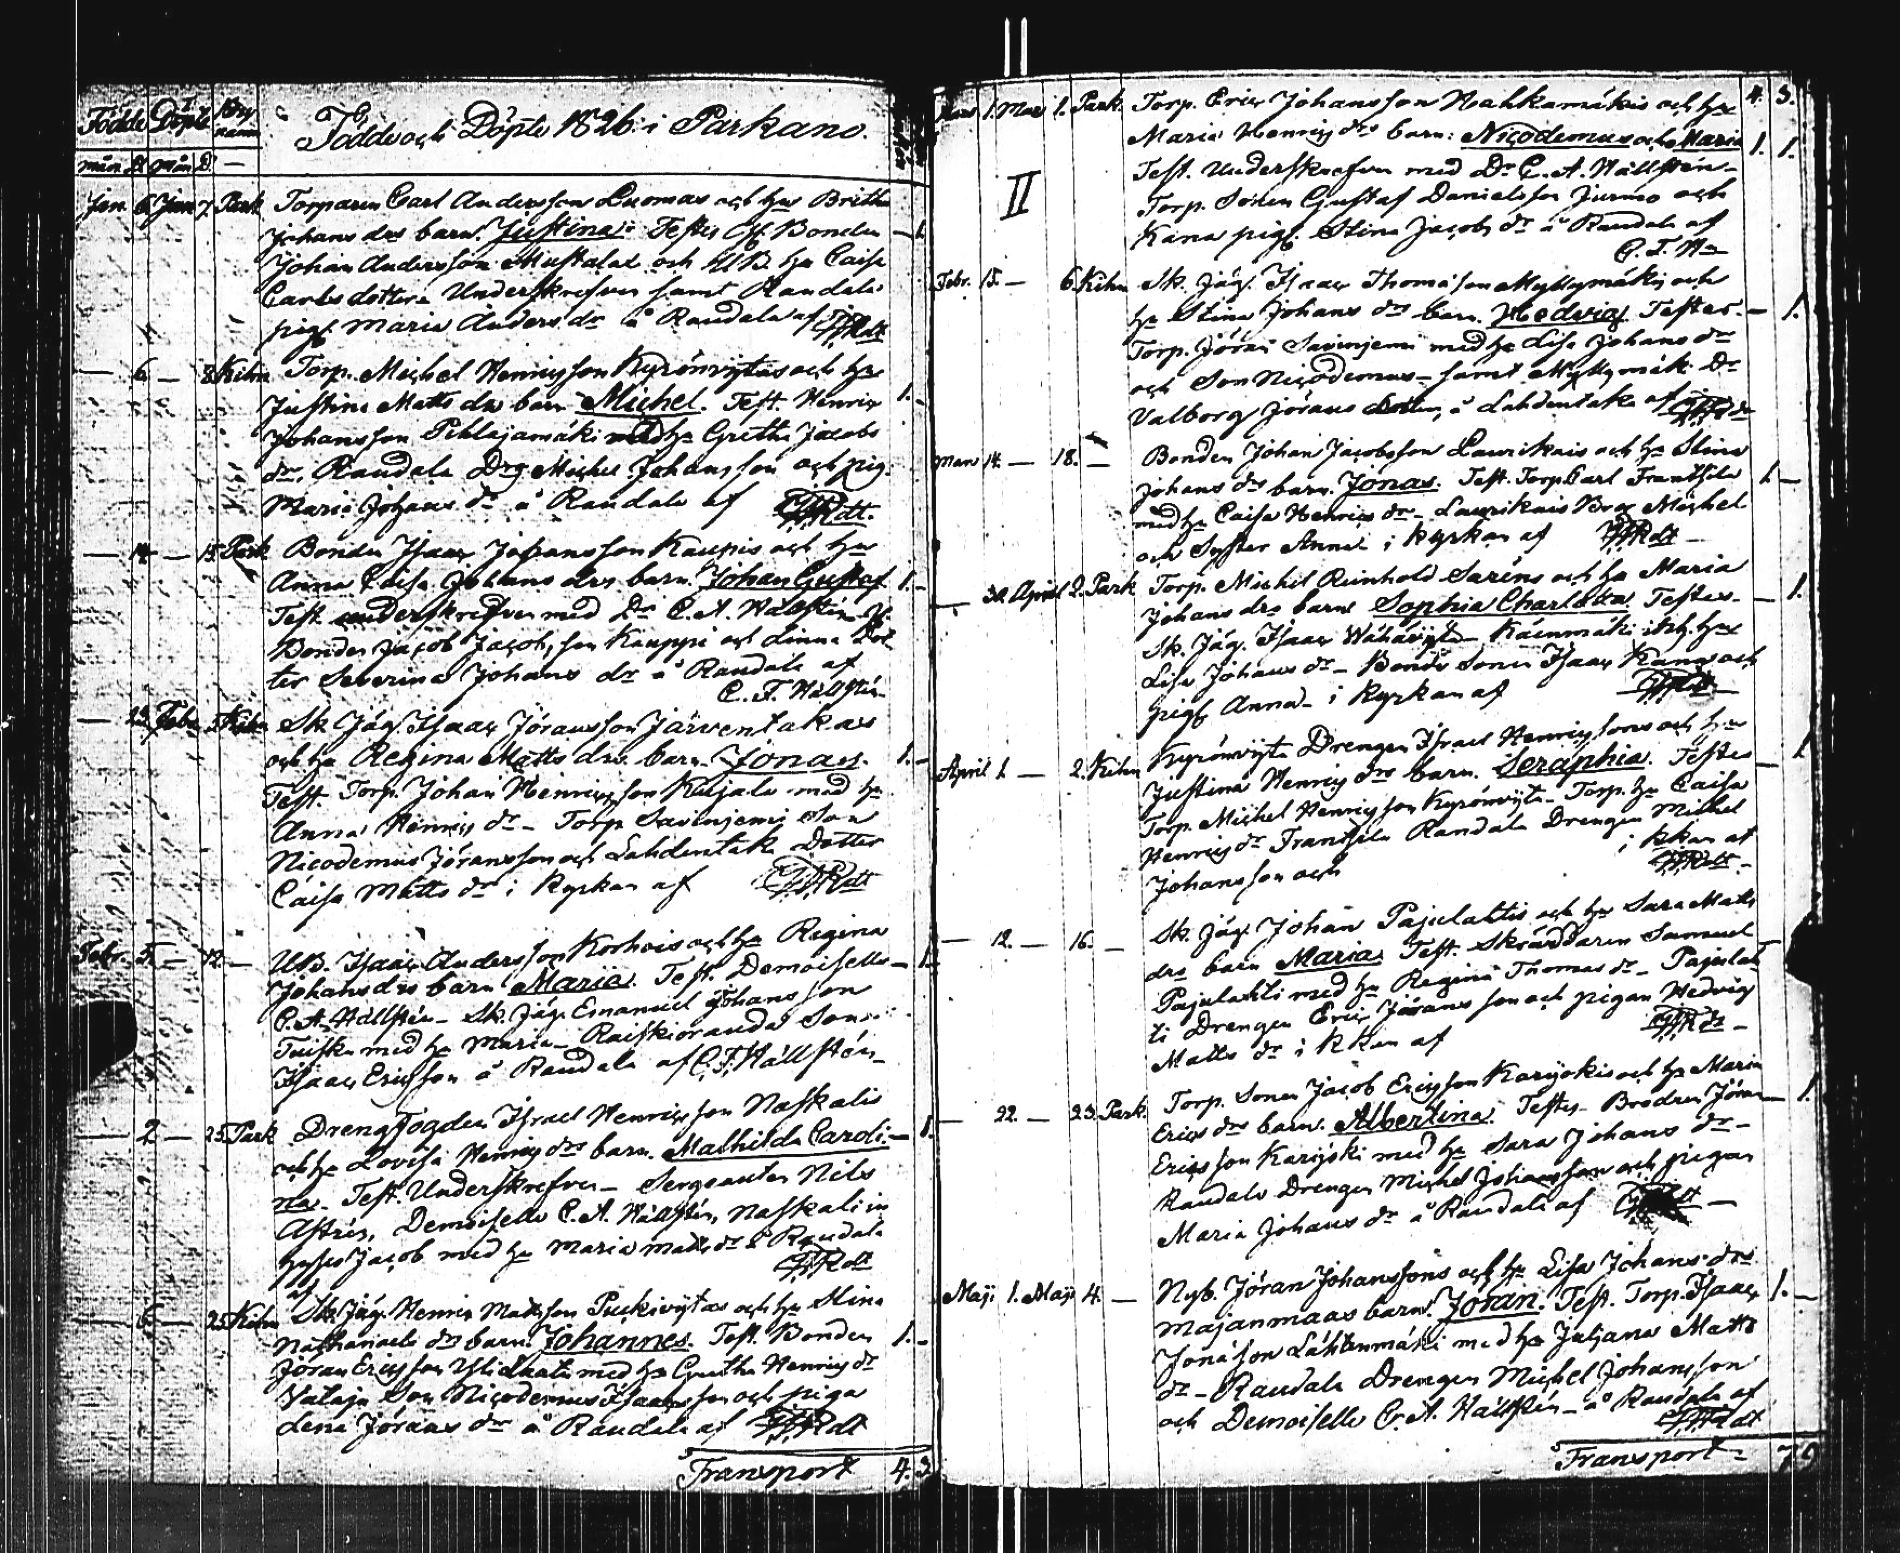 Födde Döpte By
namn
Födde och Döpte 1826 i Parkano.
mån. D. mån D.
Jan. 6. Jan 7. Park Torparen Carl Andersson Luomas och hus Britha
Johans drs barn. Justina. Testes Bonden
Johan Andersson Mustalax och UB. ha Caisa
Carls dotter Underskrefven samt Randala
pig. Maria Anders dr å Randala af
6. 8. Kihn Torp. Michel Henricsson Kyrönvytas och hs
Justina Matts drs barn Michel. Test. Henric
Johansson Pihlajamäki med ha Gretha Jacobs
dr. Randala Drg Michel Johansson och pig.
Maria Johans dr å Randala af
14. 15. Park Bonden Isaac Johansson Kaupis och hs
Anna Caisa Johans drs barn. Johan Gustaf 1.
Test. underskrefven med Dr C. A. Hällstén
Bonden Jacob Jacobsson Kauppi och Linna Dot-
ter Severina Johans dr å Randala af
C. F. Hällstén
Febr. Kihn Sk. Jäg. Isaac Jöransson Järventakas
och ha Regina Matts drs barn Jonas. 1.
Test. Torp. Johan Henricsson Kujala med ha
Anna Henrics dr – Torp. Savinjemi Son
Nicodemus Jöransson och Lahdentaka Dotter
Caisa Matts dr i Kyrkan af
Febr. 5. 12. UB. Isaac Andersson Korhois och ha Regina
Johans drs barn Maria. Test. Demoiselle 1.
C. A. Hällstén – Sk. Jäg. Emanuel Johansson
Tuiska med ha Maria – Raiskioranda Son
Isaac Ericsson å Randala af C. F. Hällstén
2 25. Park Drengfogden Israel Henricsson Naskalis
och ha Lovisa Henrics drs barn. Mathilda Caroli- 1.
na. Test. Underskrefven – Sergeanten Nils
Astrén, Demoiselle C. A. Hällstén, Naskali in
hyses Jacob med ha Maria Matts dr å Randala
af
6. 25. Kihn Sk. Jäg. Henric Mattsson Puckivytas och ha Stina
Nathanaels drs barn. Johannes. Test. Bonden 1.
Jöran Ericsson Yliskata med ha Gretha Henrics dr
Vataja Son Nicodemus Isaacsson och piga
Lena Jörans dr å Randala af
Transport 4. 3.
Mars 1. Mars 1. Park. Torp. Eric Johansson Nahkamäkis och hs 4. 3.
Maria Henrics drs barn: Nicodemus och Maria 1. 1.
Test. Underskrefven med Dr C. A. Hällstén –
Torp. Sonen Gustaf Danielsson Jurmo och
Kana pig. Stina Jacobs dr å Randala af
C. F. Hn
II
Febr. 15. 6. Kihn Sk. Jäg. Isaac Thomasson Myllymäkis och
ha Stina Johans drs barn. Hedvig. Testes. 1.
Torp. Jöran Savinjemi med ha Lisa Johans dr
och Son Nicodemus – samt Myllymäk. Dr
Valborg Jörans dotter, å Lahdentaka af
Mars 14. 18. Bonden Johan Jacobsson Laurikais och ha Stina
Johans drs barn. Jonas. Test. Torp. Carl Frantsila 1.
med ha Caisa Henrics dr – Laurikais Bror Michel
och Syster Anna i Kyrkan af
30. April 2. Park Torp. Michel Reinhold Saréns och ha Maria
Johans drs barn Sophia Charlotta. Testes 1.
Sk. Jäg. Isaac Wähävyta – Käenmäki
Lisa Johans dr – Bonde Sonen Isaac Kana och
pig. Anna – i Kyrkan af
April 1. 2. Kihn Kyrönvyta Drengen Israel Henricssons och hs
Justina Henrics drs barn. Seraphia. Testes 1.
Torp. Michel Henricsson Kyrönvyta – Torp. ha Caisa
Henrics dr Frantsila Randala Drengen Michel
Johansson och i Kkan af
12. 16. Sk. Jäg. Johan Pajulahtis och ha Sara Matts
drs barn Maria. Test. Skräddaren Samuel
Pajulahti med ha Regina Thomas dr – Pajulah
ti Drengen Eric Jöransson och pigan Hedvig
Matts dr i Kkan af
22. 23. Park. Torp. Sonen Jacob Ericsson Karijokis och ha Maria
Erics drs barn. Albertina. Testes – Brodren Jöran 1.
Ericsson Karijoki med ha Sara Johans dr –
Randala Drengen Michel Johansson och pigan
Maria Johans dr å Randala af
Maji 1. Maji 4. Nyb. Jöran Johanssons och ha Lisa Johans drs
Majanmaas barn. Jöran. Test. Torp. Isaac 1.
Jonasson Lähtenmäki med ha Juljana Matts
dr – Randala Drengen Michel Johansson
och Demoiselle C. A. Hällstén – å Randala af
Transport 7.